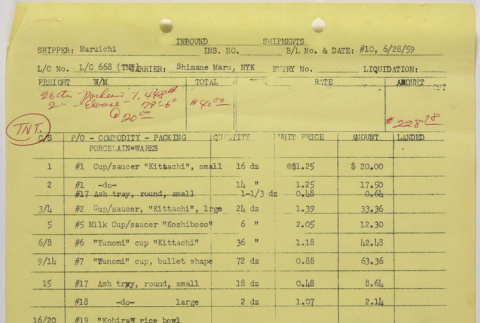 INBOUND SHIPMENTS
SHIPPER: Maruichi INS. NO. B/L No. & DATE: #10, 6/28/59
L/C No. L/C 668 (TNT) CARRIER: Shimane Maru, NYK ENTRY No. LIQUIDATION:
FREIGHT W/M TOTAL RATE AMOUNT
26 ctn
TNT.
C/S P/O - COMMODITY - PACKING QUANTITY UNIT PRICE AMOUNT LANDED
PORCELAIN-WARES
1 #1 Cup/saucer "Kittachi", small 16 dz @$1.25 $ 20.00
2 #1 -do- 14 " 1.25 17.50
#17 Ash tray, round, small 1-1/3 dz 0.48 0.64
3/4 #2 Cup/saucer, "Kittachi", lrge 24 dz 1.39 33.36
5 #5 Milk Cup/saucer "Koshiboso" 6 " 2.05 12.30
6/8 #6 "Yunomi" cup "Kittachi" 36 " 1.18 42.48
9/14 #7 "Yunomi" cup, bullet shape 72 dz 0.88 63.36
15 #17 Ash tray, round, small 18 dz 0.48 8.64
#18 -do- large 2 dz 1.07 2.14
16/20 #19 "Kohira" rice bowl